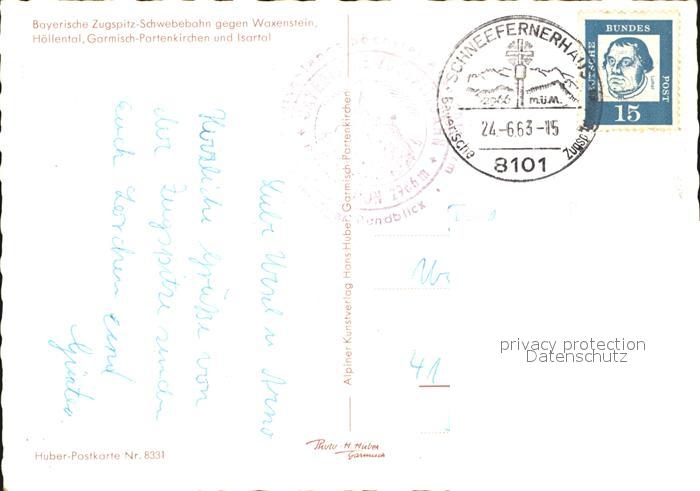 Bayerische Zugspitz-Schwebebahn gegen Waxenstein,
Höllental, Garmisch-Partenkirchen und Isartal
SCHNEEFERNERHAUS
2966 m.ü.M.
24.-6.63-15
Bayerische Zugspitz
8101
BUNDES
POST
DEUTSCHE
Luther
15
2966 m
Rundblick
Liebe Ursel u Arno
Herzliche Grüße von
der Zugspitze senden
Euch Lorchen und
Günter.
Alpiner Kunstverlag Hans Huber, Garmisch-Partenkirchen
41
privacy protection
Datenschutz
Huber-Postkarte Nr. 8331
Photo-H. Huber
Garmisch